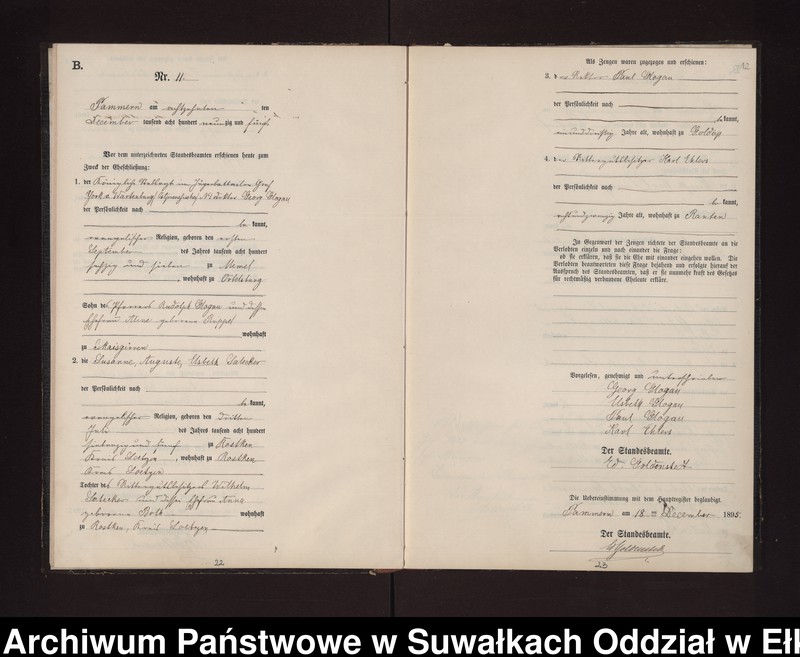 B.
Nr. 11.
Tammern am achtzehnten ten
December tausend acht hundert neunzig und fünf
Vor dem unterzeichneten Standesbeamten erschienen heute zum
Zweck der Eheschließung:
1. der Königliche im Jägerbataillon Graf
York v. Wartenberg Georg Glogau
der Persönlichkeit nach
be kannt,
evangelischer Religion, geboren den ersten
September des Jahres tausend acht hundert
sechzig und sieben zu Memel
, wohnhaft zu Ortelsburg
Sohn des Pfarrers Rudolph Glogau und dessen
Ehefrau geborene
wohnhaft
zu
2. die Susanne, Auguste, Salecker
der Persönlichkeit nach
be kannt,
evangelischer Religion, geboren den dritten
Juli des Jahres tausend acht hundert
siebenzig und fünf zu Rostken
Kreis Loetzen, wohnhaft zu Rostken
Kreis Loetzen
Tochter des Rittergutsbesitzers Wilhelm
Salecker und dessen Ehefrau Anna
geborene wohnhaft
zu Rostken, Kreis Loetzen
22
Als Zeugen waren zugezogen und erschienen:
3. der Paul Glogau
der Persönlichkeit nach
be kannt,
einunddreißig Jahre alt, wohnhaft zu Goldap
4. der Rittergutsbesitzer Karl Ehlers
der Persönlichkeit nach
be kannt,
achtundzwanzig Jahre alt, wohnhaft zu Ranten
In Gegenwart der Zeugen richtete der Standesbeamte an die
Verlobten einzeln und nach einander die Frage:
ob sie erklären, daß sie die Ehe mit einander eingehen wollen. Die
Verlobten beantworteten diese Frage bejahend und erfolgte hierauf der
Ausspruch des Standesbeamten, daß er sie nunmehr kraft des Gesetzes
für rechtmäßig verbundene Eheleute erkläre.
Vorgelesen, genehmigt und unterschrieben
Georg Glogau
Glogau
Paul Glogau
Karl Ehlers
Der Standesbeamte.
Die Uebereinstimmung mit dem Hauptregister beglaubigt.
Tammern am 18. ten December 1895.
Der Standesbeamte.
23
Archiwum Państwowe w Suwałkach Oddział w Ełk